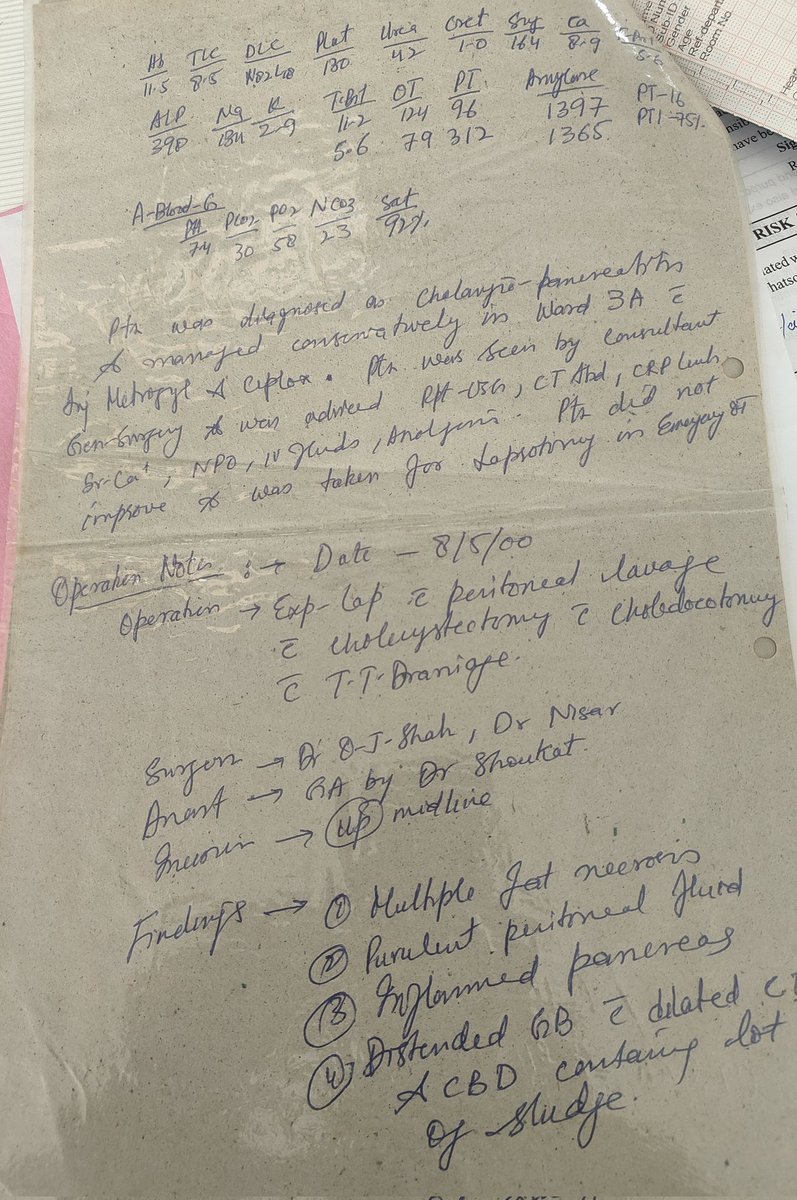 Hb TLC DLC Plat Urea Creat Sug Ca
11.5 8.5 130 42 1.0 164 8.9 5.6
ALP Na K T.Bil OT PT Amylase PT-16
390 134 2.9 11.2 124 96 1397 PTI-75%
5.6 79 312 1365
A-Blood-G
PH PCO2 PO2 HCO3 Sat
7.4 30 58 23 92%
Ptn was diagnosed as Cholangio-pancreatitis
& managed conservatively in Ward 3A c̄
Inj Metrogyl & Ciplox. Ptn was seen by consultant
Gen-Surgery & was adviced Rpt-USG, CT Abd, CRP levels
Sr-Ca+, NPO, IV fluids, Analgesis. Ptn did not
improve & was taken for Laprotomy in Emergency OT
Operation Notes :→ Date - 8/5/00
Operation → Exp-Lap c̄ peritoneal lavage
c̄ Cholecystectomy c̄ Choledocotomy
c̄ T.T. Dranige.
Surgeon → Dr O-J-Shah, Dr Nisar
Anast → GA by Dr Shoukat.
Incision → up midline
Findings → ① Multiple fat necrosis
② Purulent peritoneal fluid
③ Inflammed pancreas
④ Distended GB c̄ dilated
& CBD containg lot
of sludge.
Sub-ID
Gender
Age
Ref-depart
Room No
have be
RISK